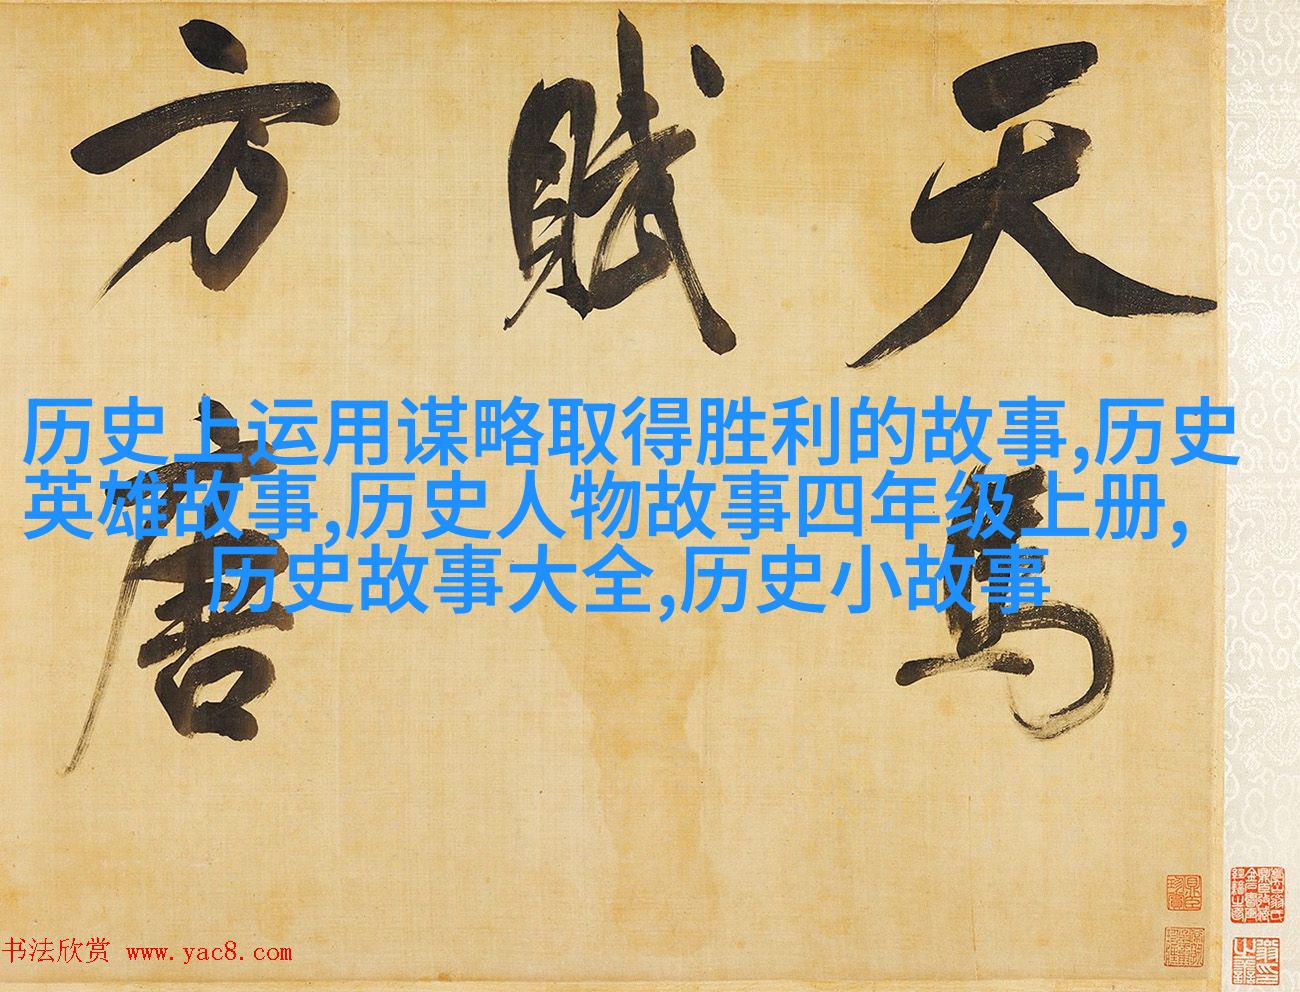 天馬
賦
唐方
历史上运用谋略取得胜利的故事,历史
英雄故事,历史人物故事四年级上册,
历史故事大全,历史小故事
书法欣赏 www.yac8.com